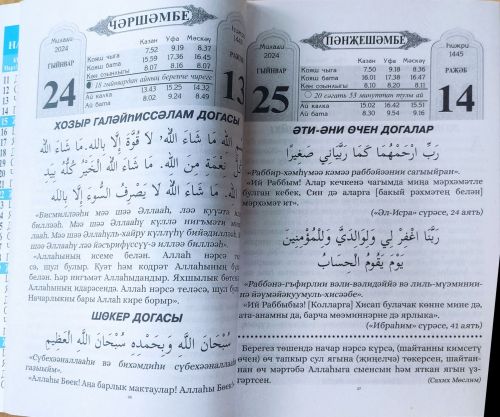 ЧӘРШӘМБЕ
Милади
2024
ГЫЙНВАР
24
Казан Уфа Мәскәү
Кояш чыга 7.52 9.19 8.37
Кояш бата 15.59 17.36 16.45
Көн озынлыгы 8.07 8.16 8.07
18 гыйнвардан айның беренче чиреге
Ай калка 13.43 15.25 14.32
Ай бата 8.02 9.24 8.49
13
ХОЗЫР ГАЛӘЙҺИССӘЛАМ ДОГАСЫ
بِسْمِ اللَّهِ مَا شَاءَ اللَّهُ، لَا قُوَّةَ إِلَّا بِاللَّهِ.
مَا شَاءَ اللَّهُ
نِعْمَةٍ مِنَ اللَّهِ. مَا شَاءَ اللَّهُ الْخَيْرُ كُلُّهُ بِيَدِ
اللَّهِ. مَا شَاءَ اللَّهُ لَا يَصْرِفُ السُّوءَ إِلَّا بِاللَّهِ.
«Бисмилләһи мәә шәә Әллааһ, ләә куүүәтә
мәә шәә Әллааһу кулля нигъмәти
мәә шәә Әллааһуль-хайру куллүһу бийәдилләәһ,
шәә Әллааһу ләә йәсърифуссүү-ә илләә билләәһ».
«Аллаһының исеме белән. Аллаһ нәрсә
сә, шул булыр. Куәт һәм кодрәт Аллаһының
белән. Һәр нигъмәт Аллаһыдандыр. Яхшылык
Аллаһының идарәсендә. Аллаһ нәрсә теләсә, шул
Начарлыкны бары Аллаһ кире борыр».
ШӨКЕР ДОГАСЫ
سُبْحَانَ اللَّهِ وَبِحَمْدِهِ سُبْحَانَ اللَّهِ الْعَظِيمِ
«Сүбехәәналлааһи вә бихәмдиһи сүбехәәналлааһи
газыйм».
«Аллаһы Бөек! Аңа барлык мактаулар! Аллаһы Бөек!»
ПӘНҖЕШӘМБЕ
Милади
2024
ГЫЙНВАР
25
Казан Уфа Мәскәү
Кояш чыга 7.50 9.18 8.36
Кояш бата 16.01 17.38 16.47
Көн озынлыгы 8.11 8.20 8.11
20 сәгать 53 минуттан тулы ай
Ай калка 15.02 16.42 15.51
Ай бата 8.30 9.54 9.16
Һиҗри
1445
РАҖӘБ
14
ӘТИ-ӘНИ ӨЧЕН ДОГАЛАР
رَبِّ ارْحَمْهُمَا كَمَا رَبَّيَانِي صَغِيرًا
«Раббир-хәмһүмәә кәмәә раббәйәәнии сагыыйран».
«Ий Раббым! Алар кечкенә чагымда миңа мәрхәмәтле
булган кебек, Син дә аларга [бакый рәхмәтең белән]
мәрхәмәт ит».
(«Әл-Исра» сүрәсе, 24 аять)
رَبَّنَا اغْفِرْ لِي وَلِوَالِدَيَّ وَلِلْمُؤْمِنِينَ
يَوْمَ يَقُومُ الْحِسَابُ
«Раббәнә-гъфирлии вәли-вәлидәййә вә лиль-муэминии-
нә йәүмәйәкуумуль-хисәәбе».
«Ий Раббыбыз! [Колларга] Хисап булачак көнне миңе дә,
ата-анамны да, барча мөэминнәрне дә ярлыка».
(«Ибраһим» сүрәсе, 41 аять)
Берегез төшендә начар нәрсә күрсә, (шайтанны кимсетү
өчен) өч тапкыр сул ягына (җиңелчә) төкерсен, шайтан-
нан өч мәртәбә Аллаһыга сыенсын һәм яткан ягын үз-
гәртсен.
(Сахих Мөслим)